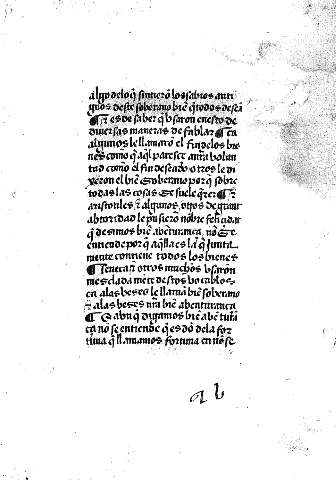 algo delo q̃ sintierõ los sabios anti
guos deste soberano biẽ q̃ todos deseã
¶ ⁊ es de saber q̃ vsaron en esto de
diuersas maneras de fablar ¶ Ca
algunos le llamarõ el fin delos bie
nes como q̃ aq̃l paresce anr̃a volun
tad como el fin deseado otros le di
xeron el biẽ Soberano por q̃ sobre
todas las cosas se suele q̃rer ¶ ⁊
aristotiles ⁊ algunos otros de gran
abtoridad le pusierõ nõbre felicidat
q̃ desimos biẽ auenturança, nõ se
entiende por q̃ aq̃lla es la q̃ junta
mente contiene todos los bienes
¶ Seneca ⁊ otros muchos vsaron
mesclada mẽte destos vocablos
ca alas beses le llaman biẽ soberano
⁊ alas beses nr̃a biẽ abenturança
¶ avn q̃ digamos biẽ abẽturãça
ca nõ se entiende q̃ es dõ dela for
tuna q̃ llamamos fortuna ca nõ se
a b